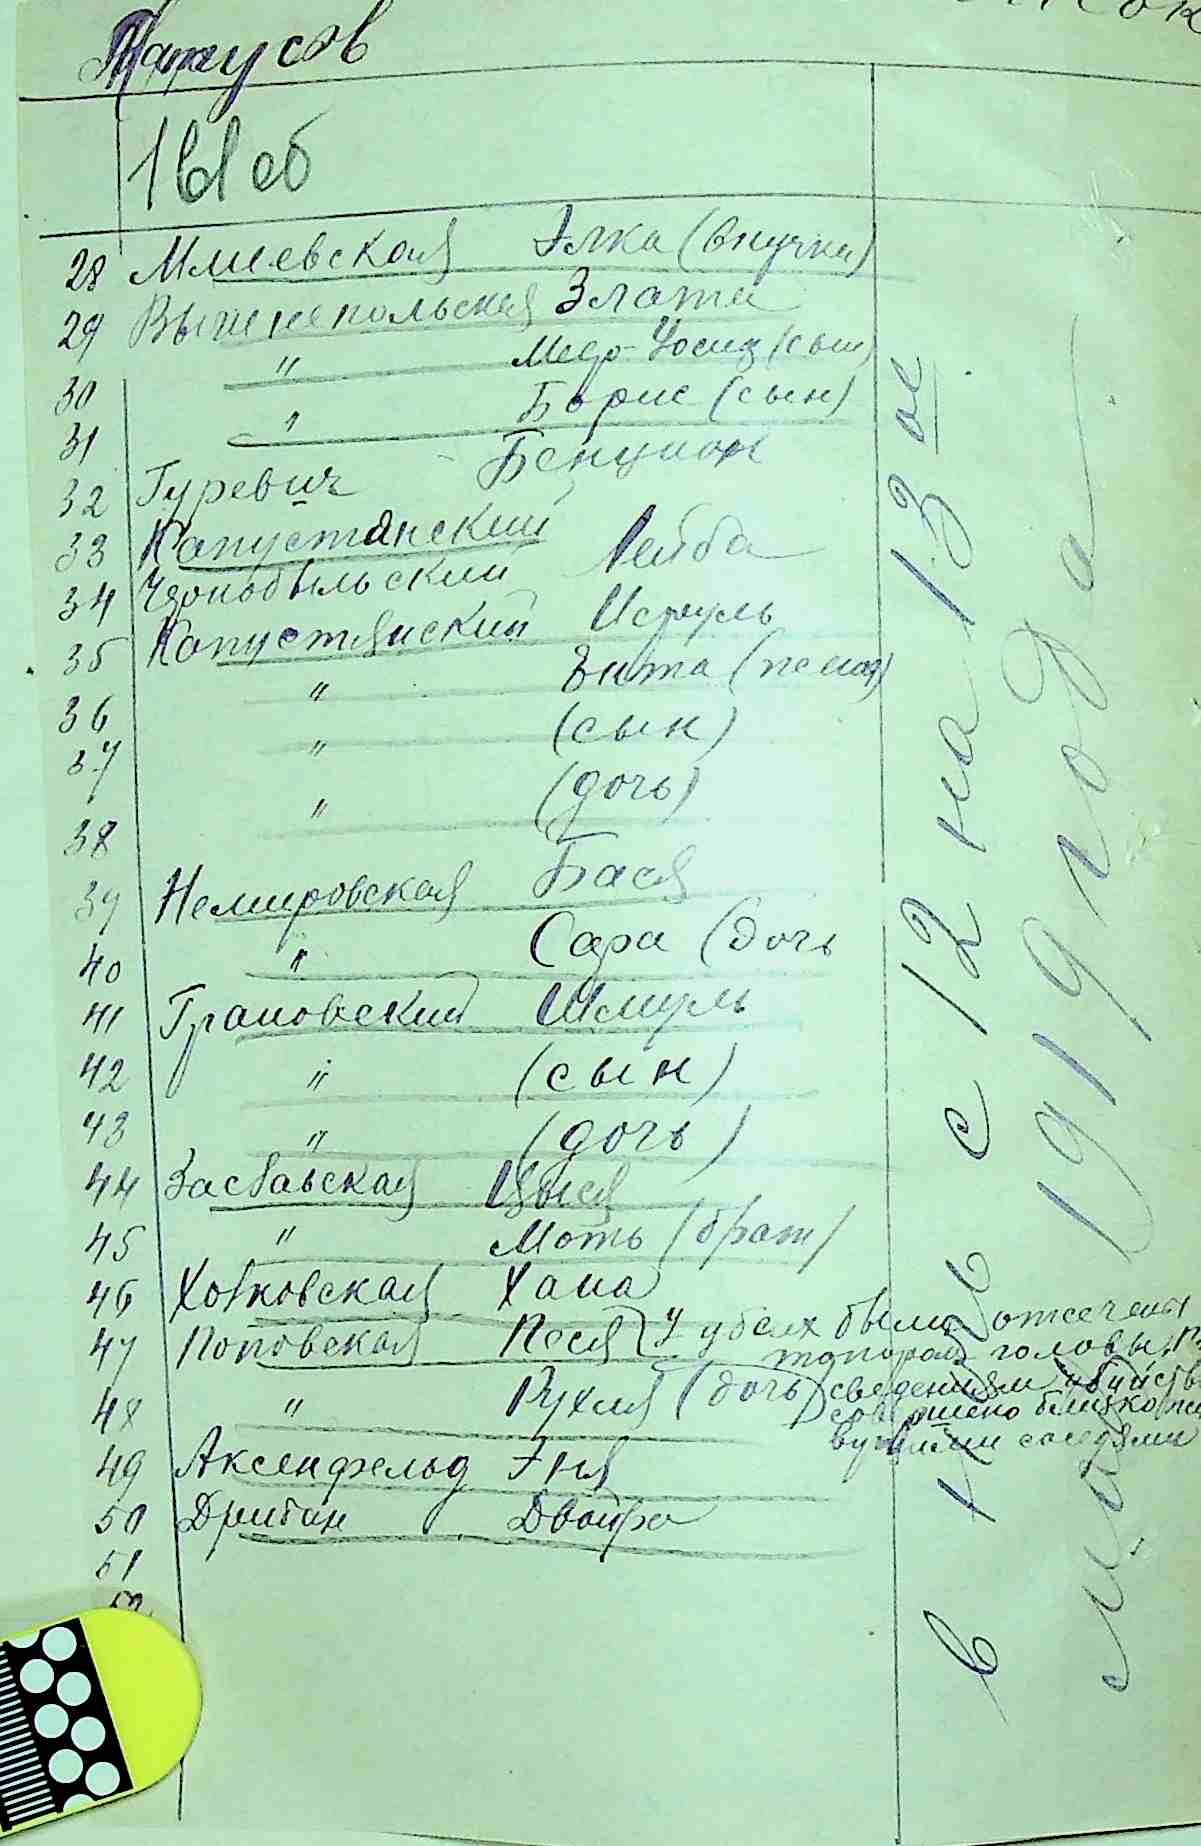 28 Млиевская Элка (внучка)
29 Вышнепольская Злата
30 " Меер-Иосиф (сын)
31 " Борис (сын)
32 Гуревич Бенцион
33 Капустянский
34 Чернобыльский Лейба
35 Капустянский Исруль
36 " Энта (жена)
37 " (сын)
38 " (дочь)
39 Немировская Бася
40 " Сара (дочь
41 Грановский Шмуль
42 " (сын)
43 " (дочь)
44 Заславская Цыся
45 " Моть (брат)
46 Хотковская Хана
47 Поповская Песя У убитых были отсечены
топором головы,
48 " Рухля (дочь) сведениям убийство
совершено близко
соседями
49 Аксенфельд Эня
50 Дритин Двойра
51
52
в ночь с 12 на 13 ое
мая 1919 года